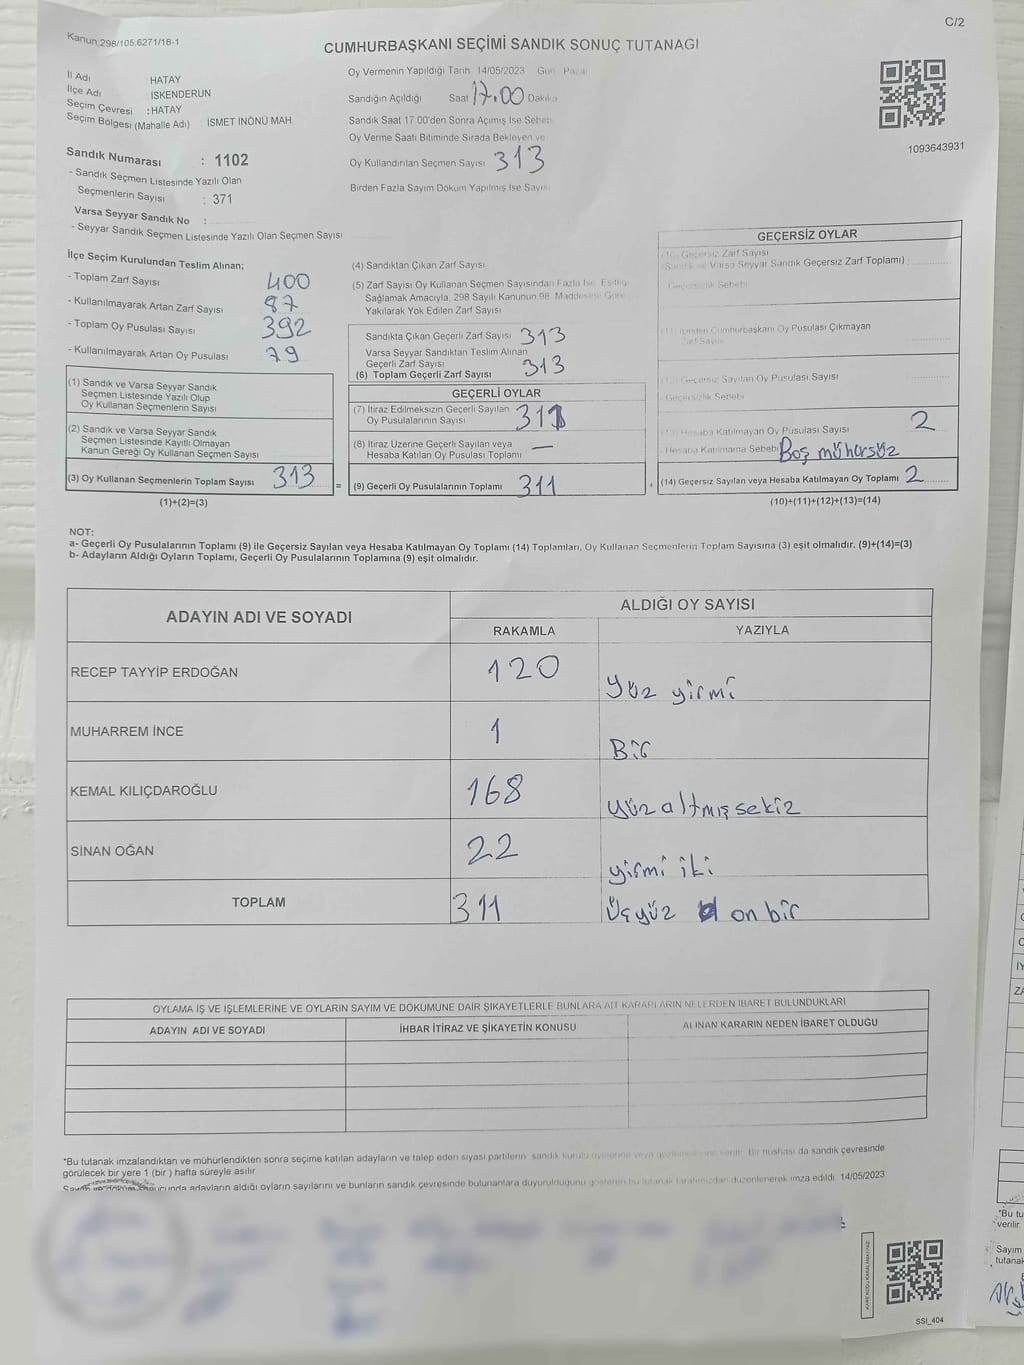 C/2
Kanun;298/105,6271/18-1
CUMHURBAŞKANI SEÇİMİ SANDIK SONUÇ TUTANAĞI
İl Adı HATAY
İlçe Adı İSKENDERUN
Seçim Çevresi : HATAY
Seçim Bölgesi (Mahalle Adı) İSMET İNÖNÜ MAH.
Oy Vermenin Yapıldığı Tarih 14/05/2023 Gün Pazar
Sandığın Açıldığı Saat 17.00 Dakika
Sandık Saat 17 00'den Sonra Açımış İse Sebebi
Oy Verme Saati Bitiminde Sırada Bekleyen ve
Oy Kullandırılan Seçmen Sayısı 313
Birden Fazla Sayım Döküm Yapılmış İse Sayısı
1093643931
Sandık Numarası : 1102
- Sandık Seçmen Listesinde Yazılı Olan
Seçmenlerin Sayısı : 371
Varsa Seyyar Sandık No :
- Seyyar Sandık Seçmen Listesinde Yazılı Olan Seçmen Sayısı
İlçe Seçim Kurulundan Teslim Alınan;
- Toplam Zarf Sayısı 400
- Kullanılmayarak Artan Zarf Sayısı 87
- Toplam Oy Pusulası Sayısı 392
- Kullanılmayarak Artan Oy Pusulası 79
(1) Sandık ve Varsa Seyyar Sandık
Seçmen Listesinde Yazılı Olup
Oy Kullanan Seçmenlerin Sayısı
(2) Sandık ve Varsa Seyyar Sandık
Seçmen Listesinde Kayıtlı Olmayan
Kanun Gereği Oy Kullanan Seçmen Sayısı
(3) Oy Kullanan Seçmenlerin Toplam Sayısı 313
(1)+(2)=(3)
=
(4) Sandıktan Çıkan Zarf Sayısı
(5) Zarf Sayısı Oy Kullanan Seçmen Sayısından Fazla İse, Eşitliği
Sağlamak Amacıyla, 298 Sayılı Kanunun 98. Maddesine Göre
Yakılarak Yok Edilen Zarf Sayısı
Sandıkta Çıkan Geçerli Zarf Sayısı 313
Varsa Seyyar Sandıktan Teslim Alınan
Geçerli Zarf Sayısı 313
(6) Toplam Geçerli Zarf Sayısı
GEÇERLİ OYLAR
(7) İtiraz Edilmeksizin Geçerli Sayılan
Oy Pusulalarının Sayısı 311
(8) İtiraz Üzerine Geçerli Sayılan veya
Hesaba Katılan Oy Pusulası Toplamı —
(9) Geçerli Oy Pusulalarının Toplamı 311
+
GEÇERSİZ OYLAR
(10) Geçersiz Zarf Sayısı
(Sandık ve Varsa Seyyar Sandık Geçersiz Zarf Toplamı)
Geçersizlik Sebebi
(11) İçinden Cumhurbaşkanı Oy Pusulası Çıkmayan
Zarf Sayısı
(12) Geçersiz Sayılan Oy Pusulası Sayısı
Geçersizlik Sebebi
(13) Hesaba Katılmayan Oy Pusulası Sayısı 2
Hesaba Katılmama Sebebi Boş mühürsüz
(14) Geçersiz Sayılan veya Hesaba Katılmayan Oy Toplamı 2
(10)+(11)+(12)+(13)=(14)
NOT:
a- Geçerli Oy Pusulalarının Toplamı (9) ile Geçersiz Sayılan veya Hesaba Katılmayan Oy Toplamı (14) Toplamları, Oy Kullanan Seçmenlerin Toplam Sayısına (3) eşit olmalıdır. (9)+(14)=(3)
b- Adayların Aldığı Oyların Toplamı, Geçerli Oy Pusulalarının Toplamına (9) eşit olmalıdır.
ADAYIN ADI VE SOYADI ALDIĞI OY SAYISI
RAKAMLA YAZIYLA
RECEP TAYYİP ERDOĞAN 120 yüz yirmi
MUHARREM İNCE 1 Bir
KEMAL KILIÇDAROĞLU 168 yüz altmış sekiz
SİNAN OĞAN 22 yirmi iki
TOPLAM 311 üçyüz on bir
OYLAMA İŞ VE İŞLEMLERİNE VE OYLARIN SAYIM VE DÖKÜMÜNE DAİR ŞİKAYETLERLE BUNLARA AİT KARARLARIN NELERDEN İBARET BULUNDUKLARI
ADAYIN ADI VE SOYADI İHBAR İTİRAZ VE ŞİKAYETİN KONUSU ALINAN KARARIN NEDEN İBARET OLDUĞU
*Bu tutanak imzalandıktan ve mühürlendikten sonra seçime katılan adayların ve talep eden siyasi partilerin sandık kurulu üyelerine veya gözlemcilerine verilir. Bir nüshası da sandık çevresinde
görülecek bir yere 1 (bir) hafta süreyle asılır
Sayım ve döküm sonucunda adayların aldığı oyların sayılarını ve bunların sandık çevresinde bulunanlara duyurulduğunu gösteren bu tutanak tarafımızdan düzenlenerek imza edildi. 14/05/2023
SSI_404
*Bu tu
verilir.
Sayım
tutanak